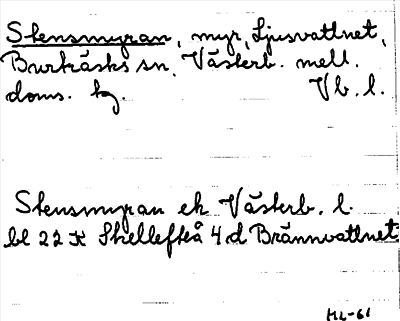 Stensmyran, myr, Ljusvattnet,
Burträsks sn, Västerb. mell.
doms. tg. Vb. l.
Stensmyran ek Västerb. l.
bl 22 K Skellefteå 4 d Brännvattnet
ML-61